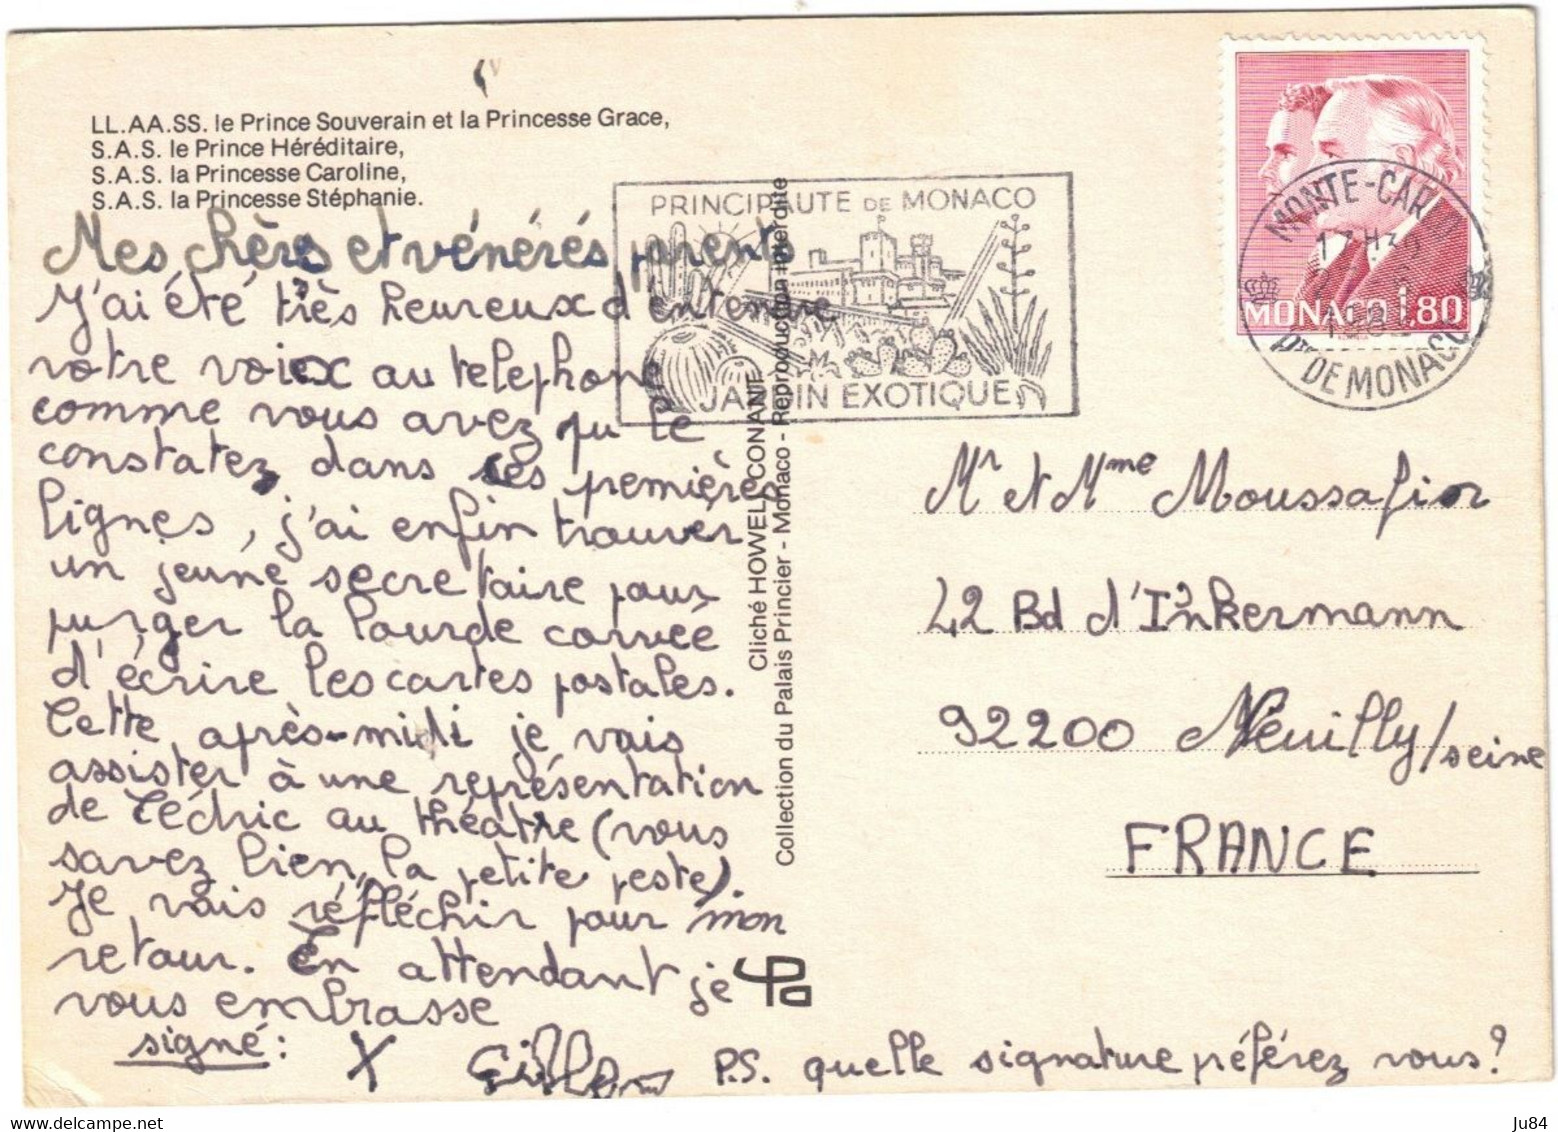 LL.AA.SS. le Prince Souverain et la Princesse Grace,
S.A.S. le Prince Héréditaire,
S.A.S. la Princesse Caroline,
S.A.S. la Princesse Stéphanie.
Mes chèrs et vénérés parents
J'ai été très heureux d'entendre
votre voix au telephone
comme vous avez pu le
constatez dans les premières
lignes, j'ai enfin trouver
un jeune secretaire pour
purger la lourde corvée
d'écrire les cartes postales.
Cette après-midi je vais
assister à une représentation
de Cédric au théatre (vous
savez bien, la petite peste).
Je vais réfléchir pour mon
retour. En attendant je
vous embrasse
signé: X
P.S. quelle signature préférez vous?
Cliché HOWELL CONANT
Collection du Palais Princier - Monaco - Reproduction interdite
PRINCIPAUTE DE MONACO
JARDIN EXOTIQUE
MONACO 1,80
MONTE-CARLO
17H30
Pté DE MONACO
Mr et Mme Moussafir
42 Bd d'Inkermann
92200 Neuilly/seine
FRANCE
Ju84